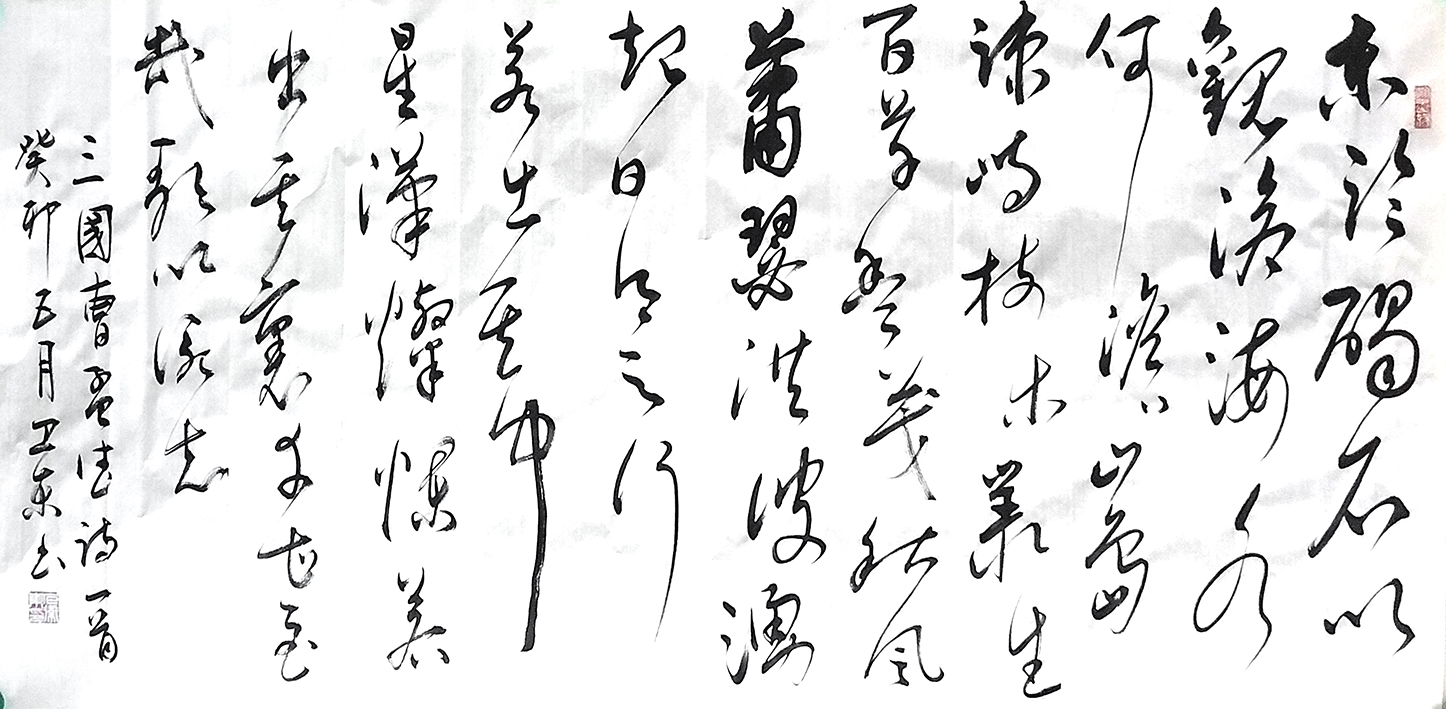 东临碣石以
觀滄海水
何澹澹山島
竦峙树木叢生
百草豐茂秋風
蕭瑟洪波湧
起日月之行
若出其中
星漢燦爛若
出其裏幸甚至
哉歌以詠志
三國曹孟德诗一首
癸卯五月卫东书